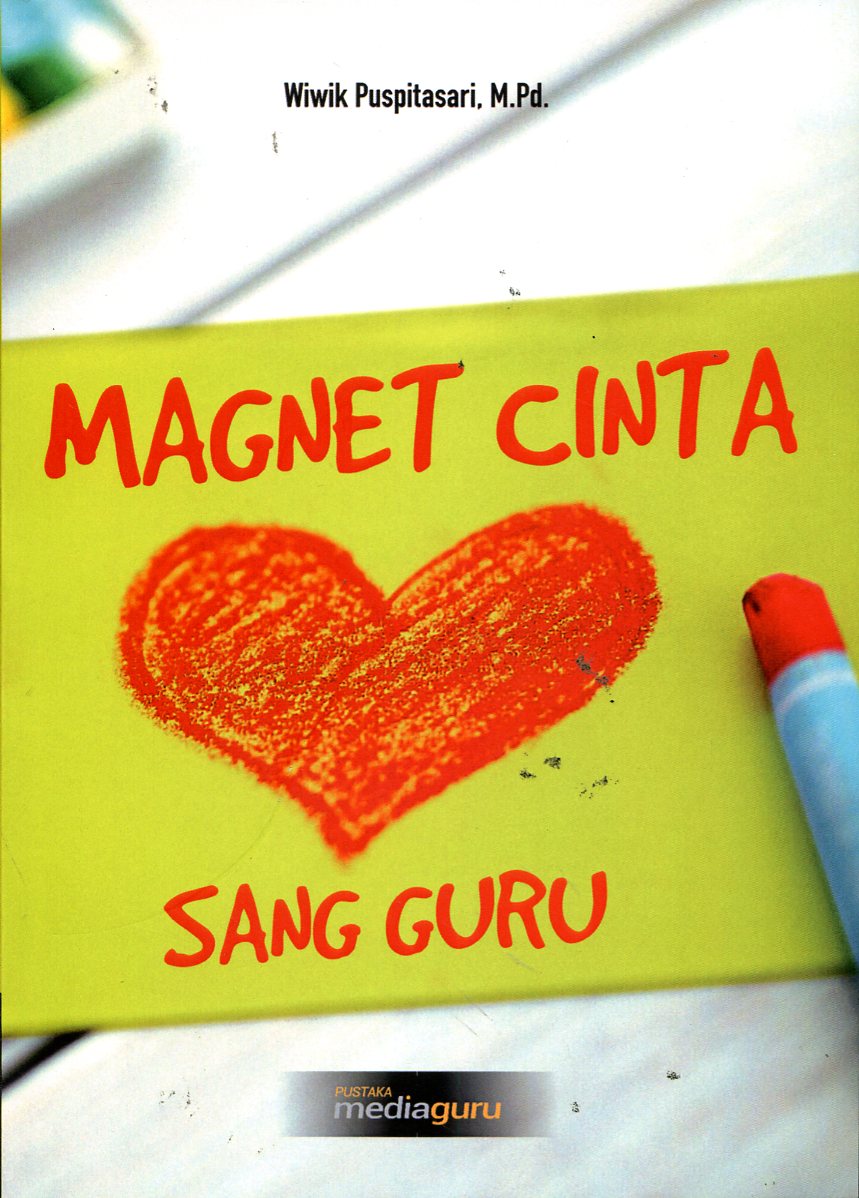 Wiwik Puspitasari, M.Pd.
MAGNET CINTA
SANG GURU
PUSTAKA
mediaguru